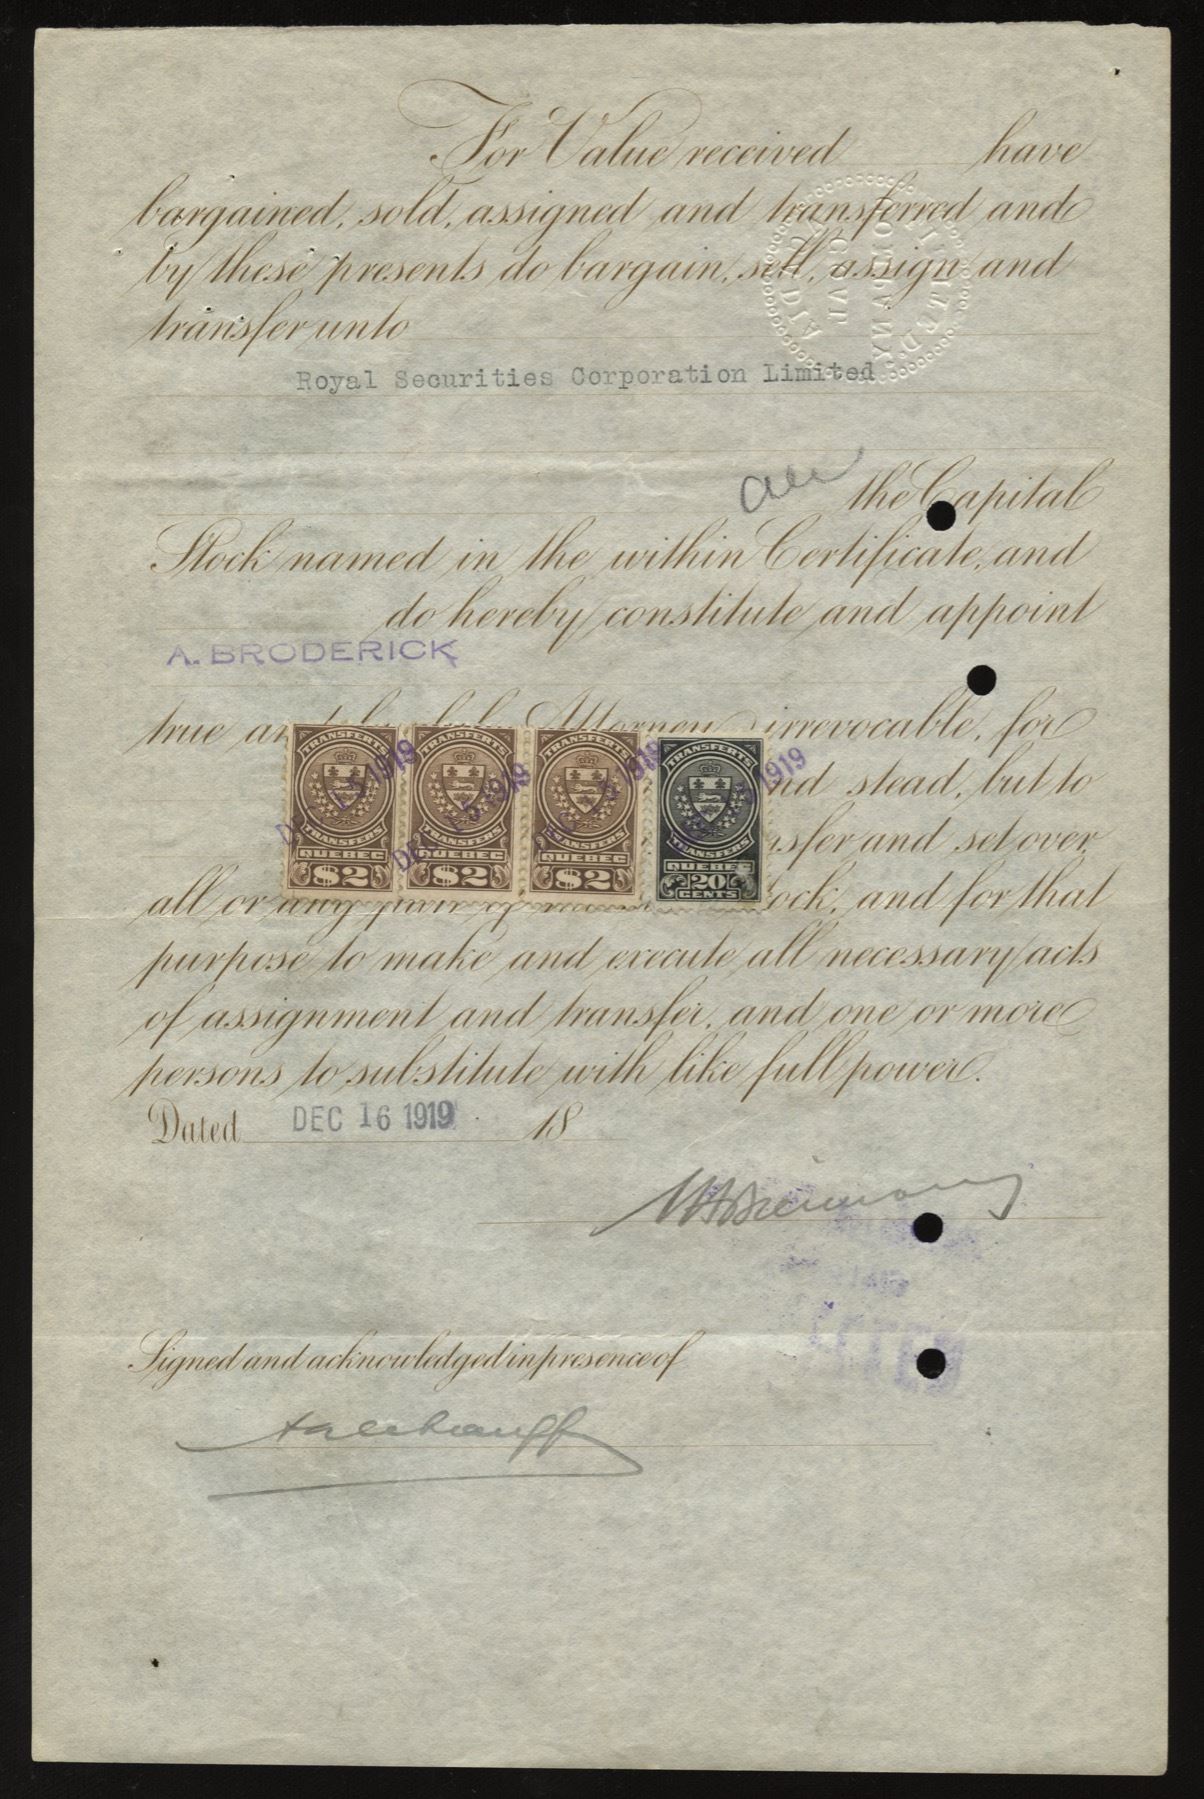 For Value received have
bargained, sold, assigned and transferred and
by these presents do bargain, sell, assign and
transfer unto
Royal Securities Corporation Limited
all the Capital
Stock named in the within Certificate, and
do hereby constitute and appoint
A. BRODERICK
true and Attorney irrevocable, for
and stead, but to
sfer and set over
all or any part of ock, and for that
purpose to make and execute all necessary acts
of assignment and transfer, and one or more
persons to substitute with like full power.
TRANSFERTS TRANSFERTS TRANSFERTS TRANSFERTS
DEC 15 1919 DEC 15 1919 1919 1919
TRANSFERS TRANSFERS TRANSFERS TRANSFERS
QUEBEC QUEBEC QUEBEC QUEBEC
$2 $2 $2 20
CENTS
Dated DEC 16 1919 18
Signed and acknowledged in presence of